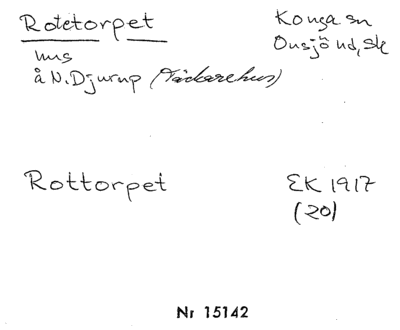 Rotetorpet Konga sn
Onsjö hd, Sk
hus
å N. Djurup (Tådarehus)
Rottorpet EK 1917
(20)
Nr 15142